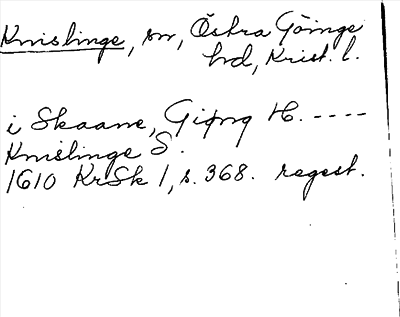 Knislinge, sn, Östra Göinge
hd, Krist. l.
i Skaane, Giøng H. ----
Knislinge S.
1610 KrSk 1, s. 368. regest.